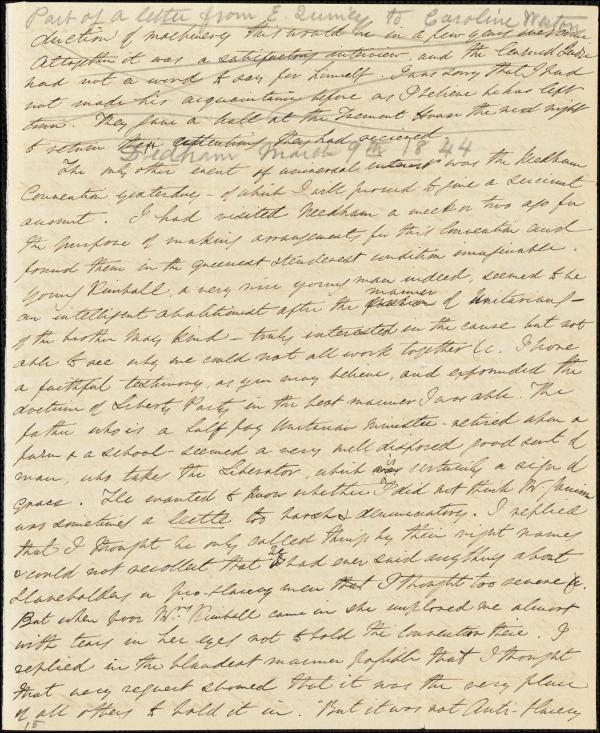 Part of a letter from E. Quincy to Caroline Weston
duction of machinery this would be in a few years
Altogether it was a satisfactory interview and the
had not a word to say for himself. I was sorry that I had
not made his acquaintance before as I believe he has left
town. They gave a ball at the Tremont House the next night
to return the they had received
Dedham March 9th 1844
The only other event of universal interest was the Needham
Convention yesterday - of which I will proceed to give a succinct
account. I had visited Needham a week or two ago for
the purpose of making arrangements for this Convention and
found them in the queerest & tenderest condition imaginable.
Young Kimball, a very nice young man indeed, seemed to be
an intelligent abolitionist after the manner of Unitarians -
of the brother May kind - truly interested in the cause but not
able to see why we could not all work together &c. I bore
a faithful testimony, as you may believe, and expounded the
doctrine of Liberty Party in the best manner I was able. The
father who is a half pay Unitarian Minister - retired upon a
farm & a school - seemed a very well disposed good sort of
man, who takes the Liberator, which is certainly a sign of
grace. He wanted to know whether I did not think Mr.
was sometimes a leetle too harsh & denunciatory. I replied
that I thought he only called things by their right names
& could not recollect that he had ever said anything about
slaveholders or pro-slavery men that I thought too severe &c.
But when poor Mrs Kimball came in she implored me almost
with tears in her eyes not to hold the Convention there. I
replied in the blandest manner possible that I thought
that very request showed that it was the very place
of all others to hold it in. "But it was not Anti-slavery